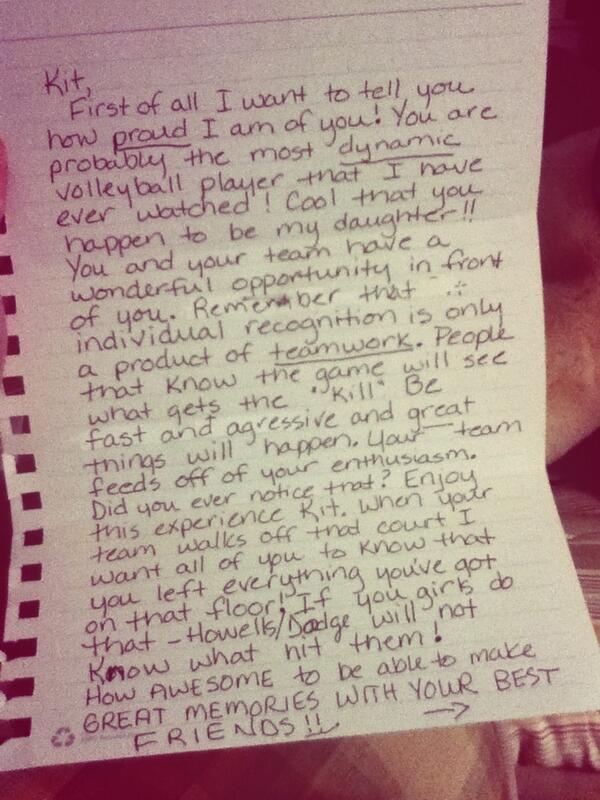 Kit,
First of all I want to tell you
how proud I am of you! You are
probably the most dynamic
volleyball player that I have
ever watched! Cool that you
happen to be my daughter!!
You and your team have a
wonderful opportunity in front
of you. Remember that
individual recognition is only
a product of teamwork. People
that know the game will see
what gets the "Kill" Be
fast and agressive and great
things will happen. Your team
feeds off of your enthusiasm.
Did you ever notice that? Enjoy
this experience Kit. When your
team walks off that court I
want all of you to know that
you left everything you've got
on that floor! If you girls do
that - Howells/Dodge will not
know what hit them!
How AWESOME to be able to make
GREAT MEMORIES WITH YOUR BEST
FRIENDS!! →